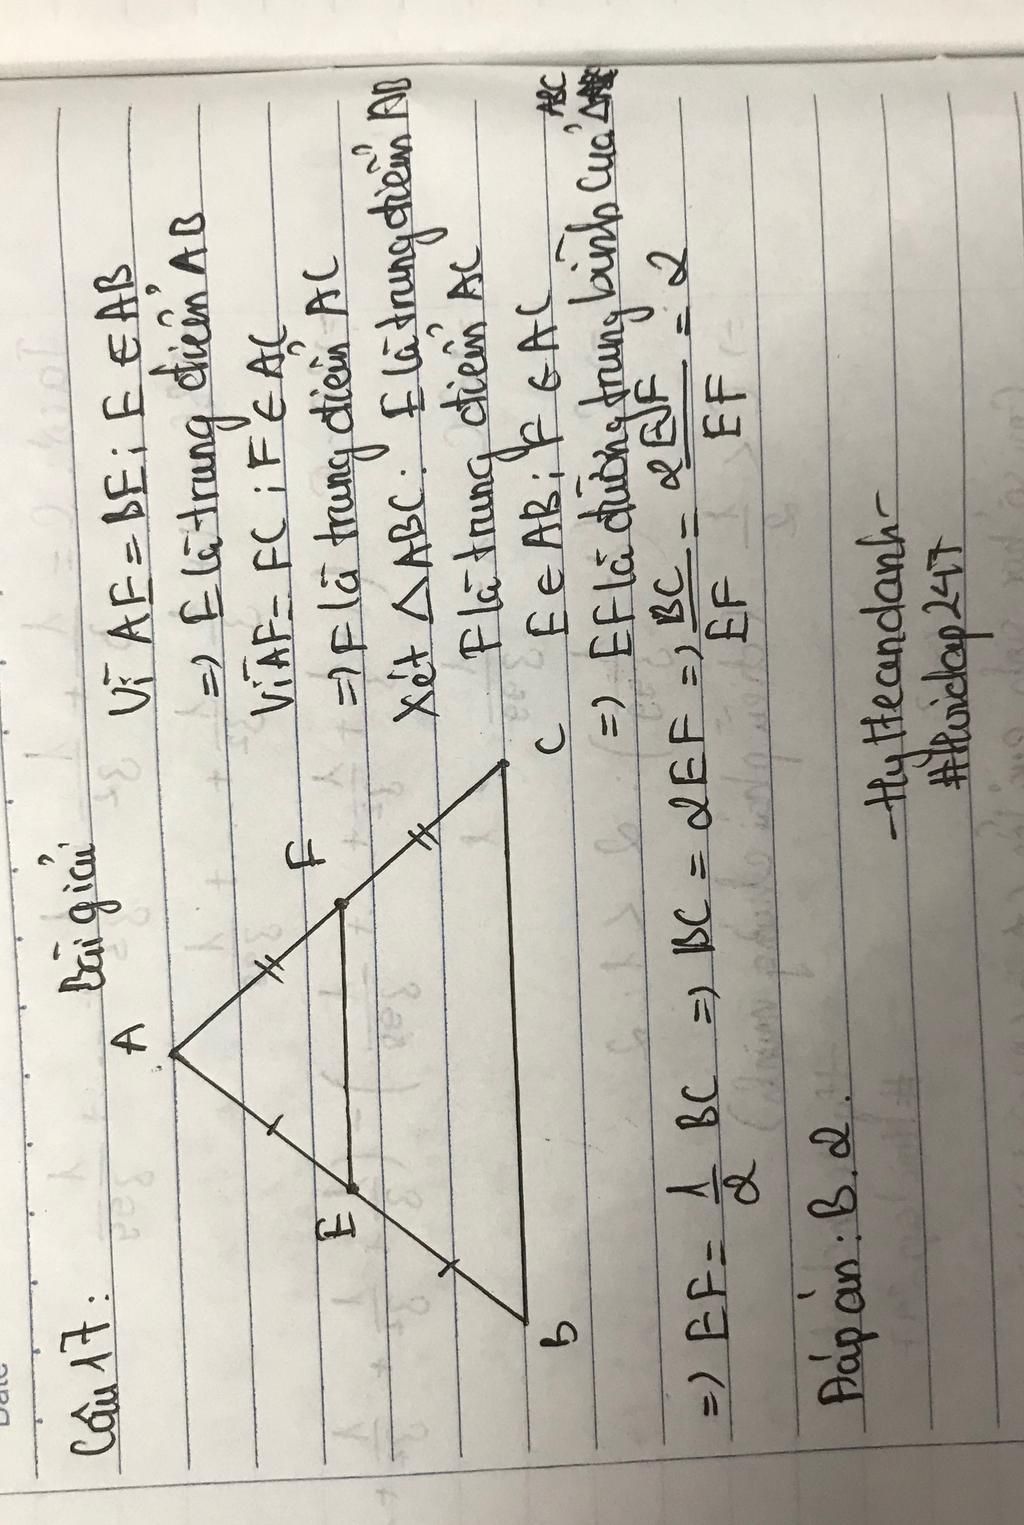 Date
Câu 17:
Bài giải
A
E
F
B
C
Vì AE = BE; E ∈ AB
=> E là trung điểm AB
Vì AF = FC; F ∈ AC
=> F là trung điểm AC
Xét △ABC: E là trung điểm AB
F là trung điểm AC
E ∈ AB; F ∈ AC
=> EF là đường trung bình của △ABC
=> EF = 1/2 BC => BC = 2EF => BC/EF = 2EF/EF = 2
Đáp án: B. 2.
#hoidap247